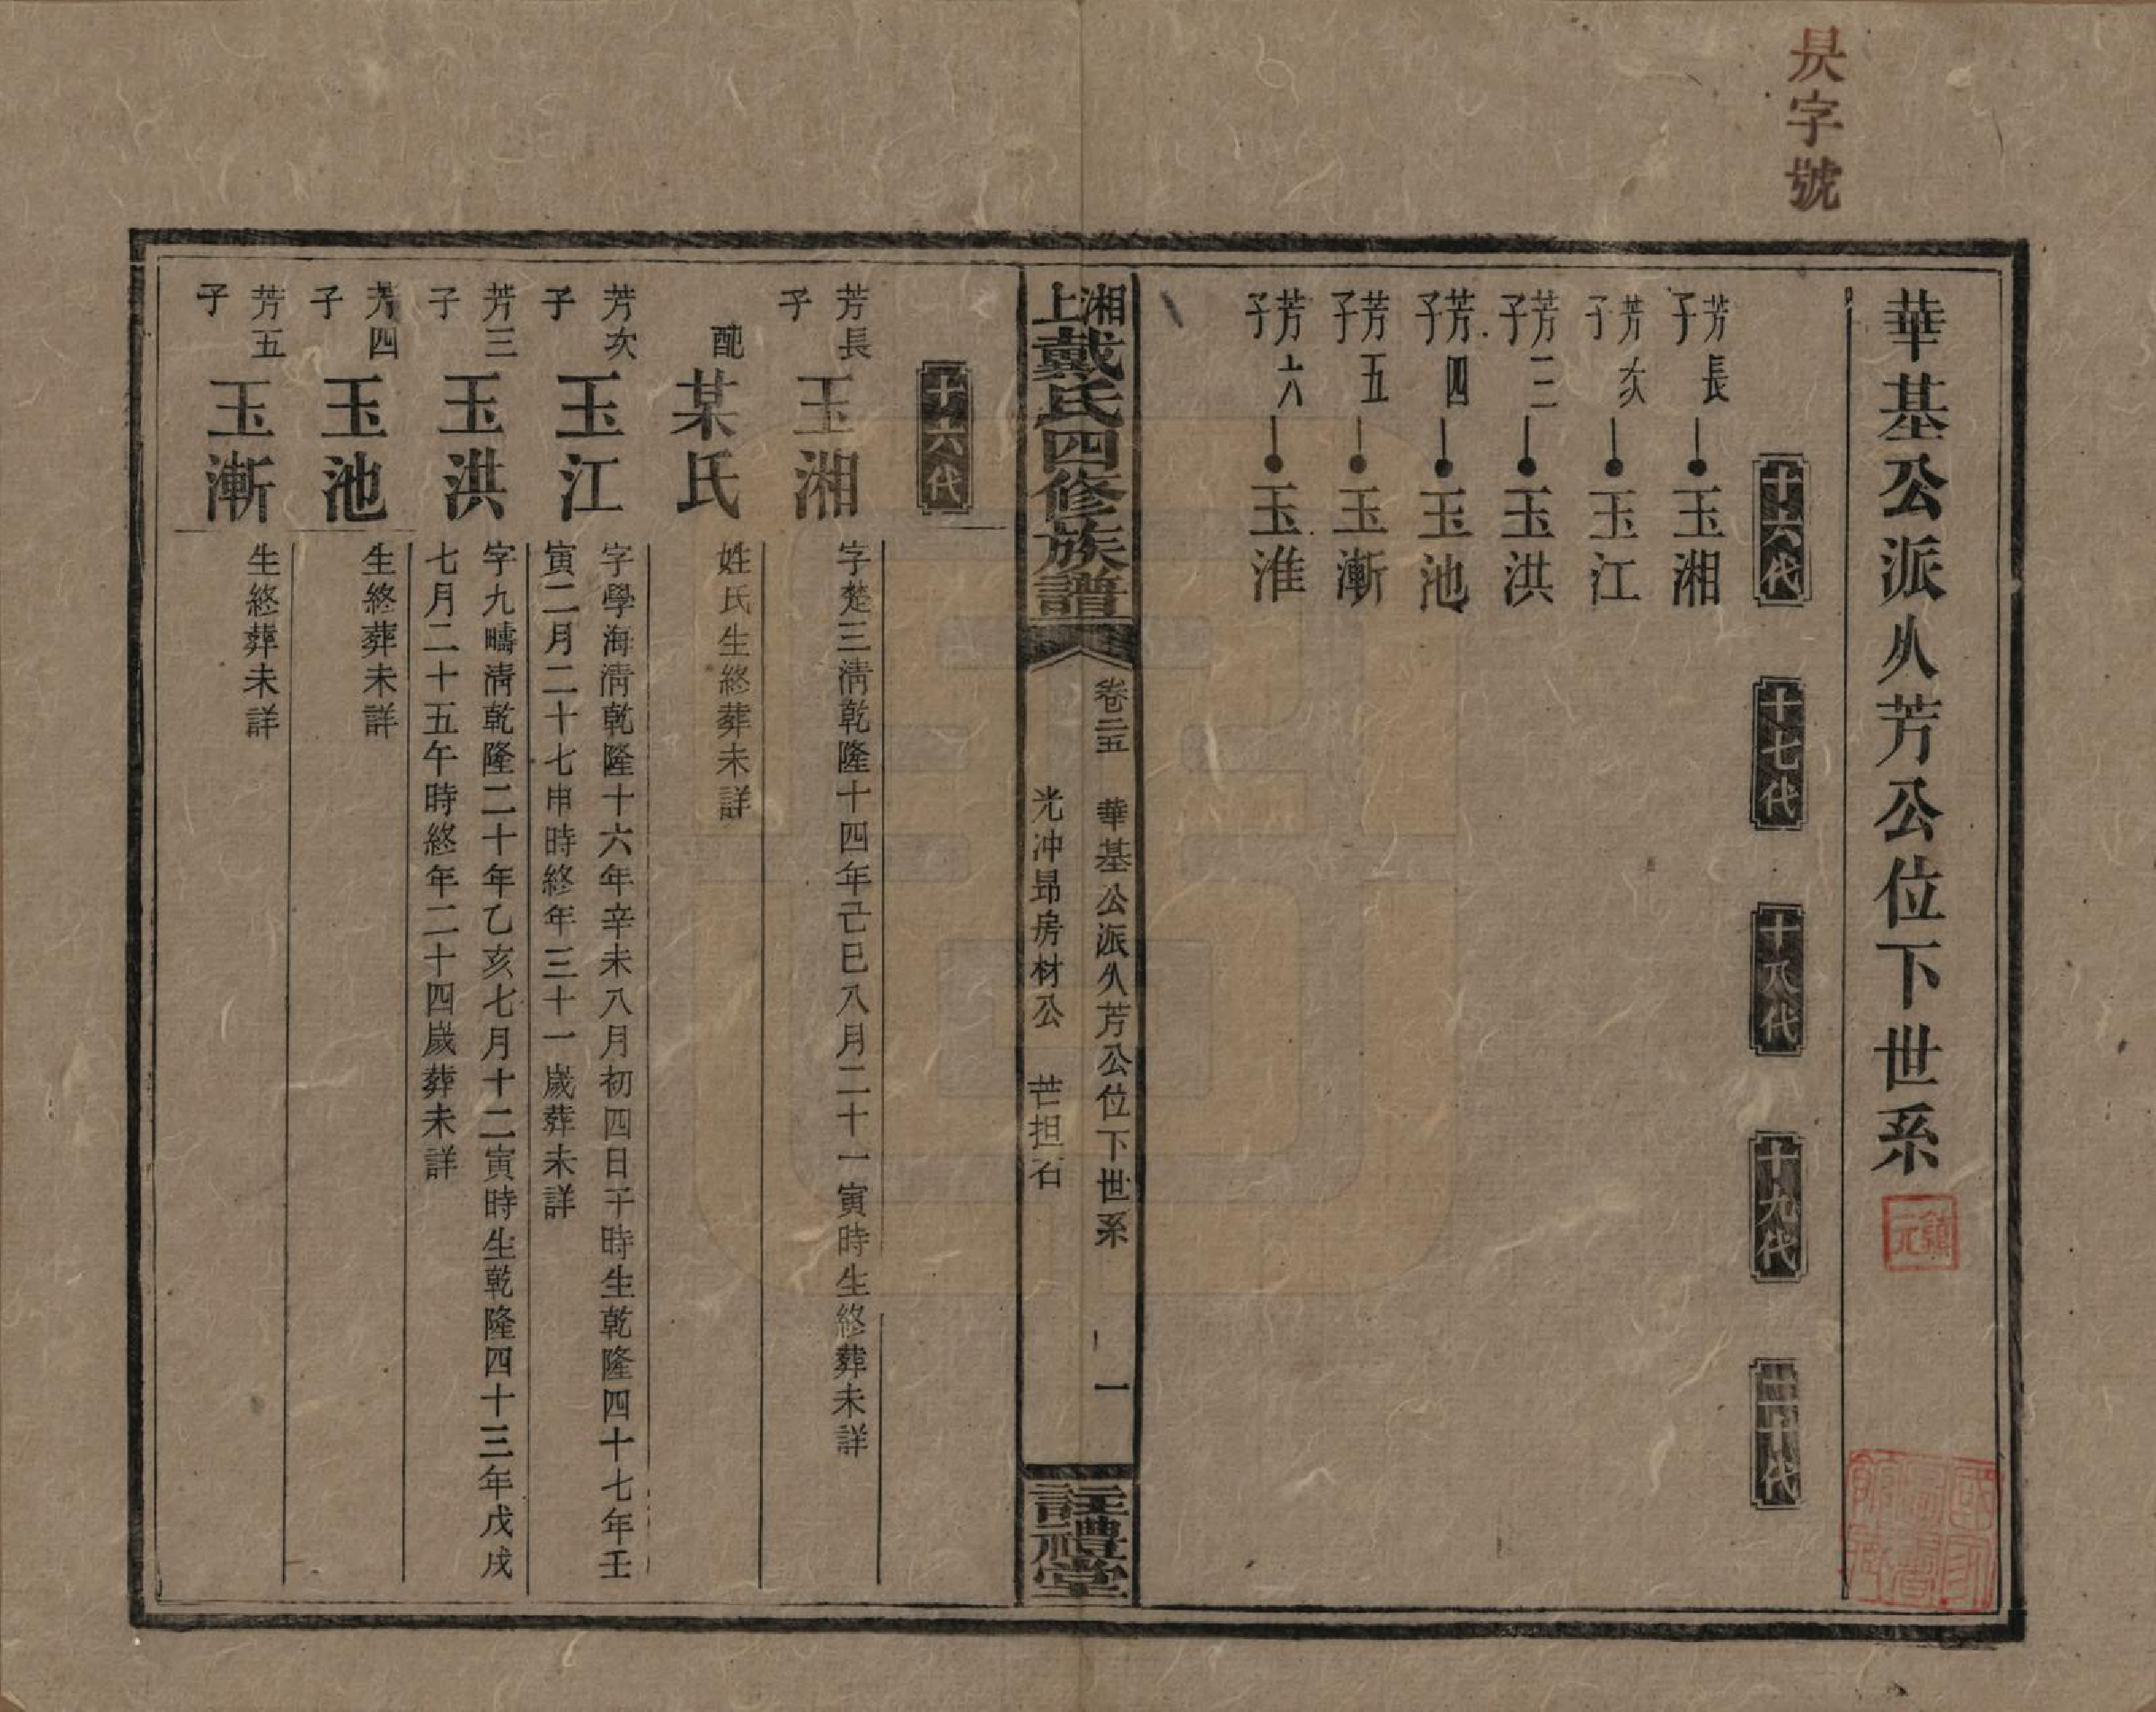 昃字號
華基公派人芳公位下世系
十六代
十七代
十八代
十九代
二十代
芳長子
玉湘
芳次子
玉江
芳三子
玉洪
芳四子
玉池
芳五子
玉漸
芳六子
玉淮
湘上戴氏四修族譜
卷二五 華基公派人芳公位下世系 一
光冲昻房材公 芒担石
註禮堂
十六代
芳長子
玉湘
字楚三淸乾隆十四年己巳八月二十一寅時生終葬未詳
配
某氏
姓氏生終葬未詳
芳次子
玉江
字學海淸乾隆十六年辛未八月初四日子時生乾隆四十七年壬
寅二月二十七申時終年三十一歲葬未詳
芳三子
玉洪
字九疇淸乾隆二十年乙亥七月十二寅時生乾隆四十三年戊戌
七月二十五午時終年二十四歲葬未詳
芳四子
玉池
生終葬未詳
芳五子
玉漸
生終葬未詳